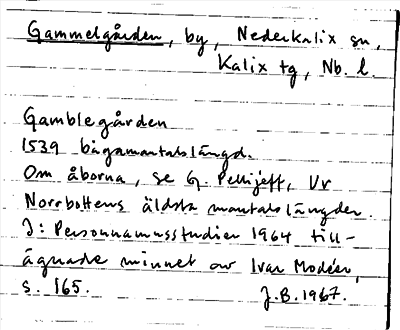 Gammelgården, by, Nederkalix sn,
Kalix tg, Nb. l.
Gamblegården
1539 bågamantalslängd.
Om åborna, se G. Pellijeff, Ur
Norrbottens äldsta mantalslängder.
I: Personnamnsstudier 1964 till-
ägnade minnet av Ivar Modéer,
s. 165.
J.B. 1967.